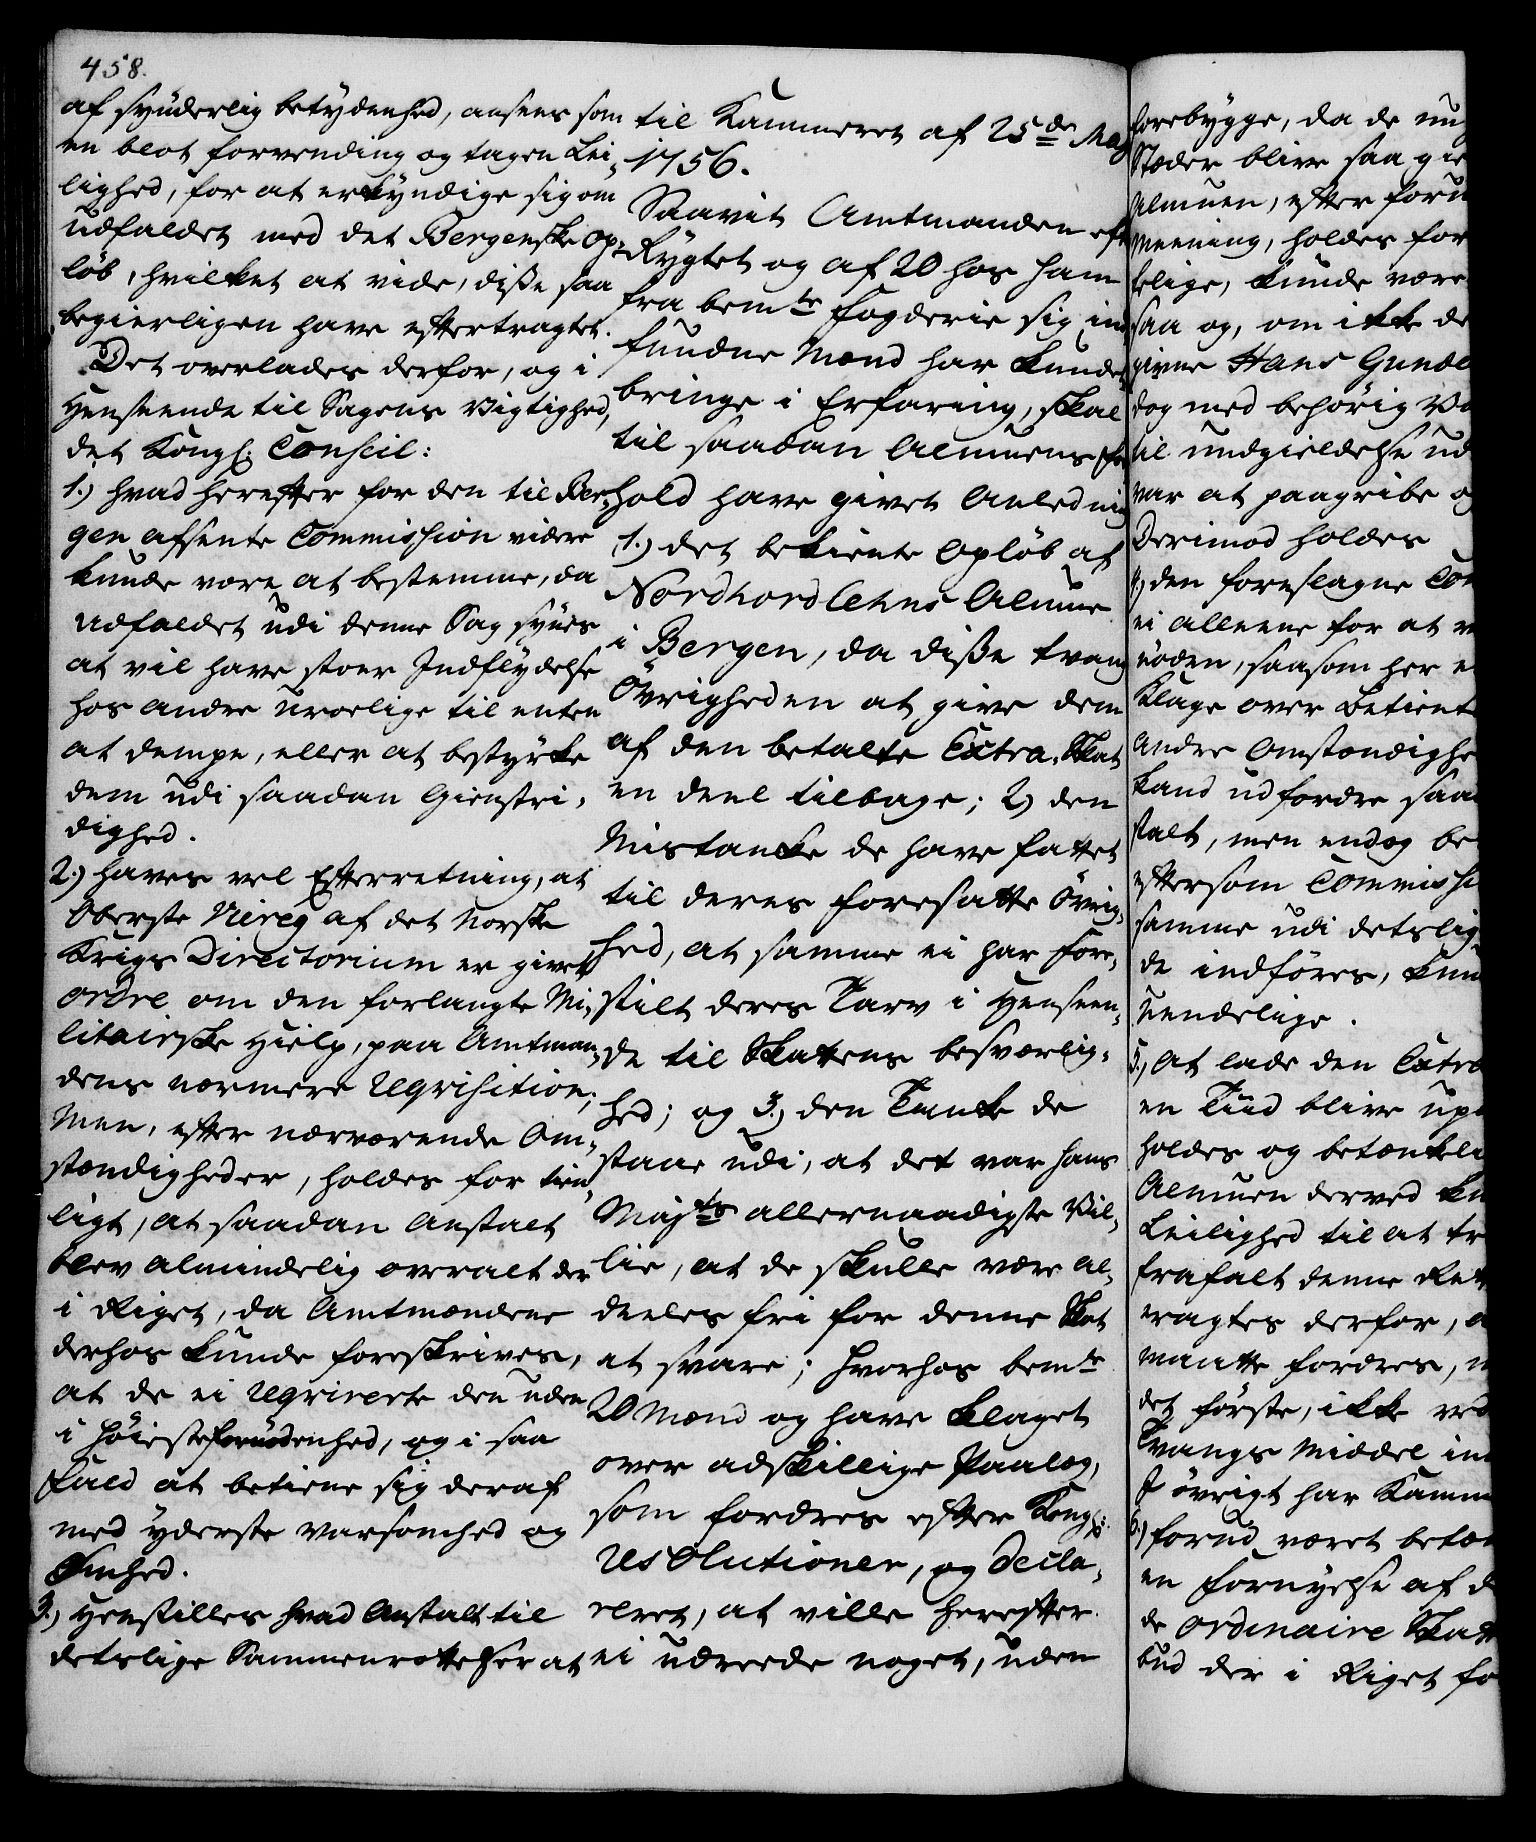 458.
af synderlig betydenhed, ansees som
en blot forvending og tagen Lei-
lighed, for at erkyndige sig om
udfaldet med det Bergenske Op-
løb, hvilket at vide, disse saa
begierligen have eftertragtet.
Det overlades derfor, og i
Henseende til Sagens Vigtighed,
det Kongl: Conseil:
1.) hvad herefter for den til Ber-
gen afsente Commission videre
kunde være at bestemme, da
Udfaldet udi denne Sag synes
at vil have stoer Indflydelse
hos andre Uroelige til enten
at dempe, eller at bestyrke
dem udi saadan Gienstri-
dighed.
2.) haves vel Efterretning, at
Oberste af det Norske
Krigs Directorium er givet
ordre om den forlangte Mi-
litairske Hielp, paa Amtman-
dens nærmere Reqvisition;
Men, efter nærværende Om-
stændigheder, holdes for tien-
ligt, at saadan Anstalt
blev almindelig overalt der
i Riget, da Amtmændene
derhos kunde foreskrives,
at de ei reqvirerte den uden
i høieste fornødenhed, og i saa
Fald at betiene sig deraf
med yderste varsomhed og
Ømhed.
3.) Henstilles hvad Anstalt til
detslige Sammenrottelser at
til Kammeret af 25de May
1756.
Saavit Amtmanden eft
Rygtet og af 20 hos ham
fra bemte Fogderie sig ind
fundne Mænd har kundet
bringe i Erfaring, skal
til saadan Almuens for
hold have givet Anledning
1.) det bekiente Opløb af
Nordhordlehns Almue
i Bergen, da disse tvang
Øvrigheden at give dem
af den betalte Extra-Skat
en deel tilbage; 2) den
Mistanke de have fattet
til deres foresatte Øvrig-
hed, at samme ei har fore-
stilt deres Tarv i Henseen-
de til Skattens besværlig-
hed; og 3.) den Tanke de
staae udi, at det var hans
Majts allernaadigste Vil-
lie, at de skulle være al-
deeles fri for denne Skat
at svare; hvorhos bemte
20 Mænd og have klaget
over adskillige Paalæg,
som fordres efter Kongl:
Resolutioner, og decla-
reret, at ville herefter
ei udreede noget, uden
forebygge, da de
Stæder blive saa
Almuen, efter
Meening, holdes for
kunde være
saa og, om ikke de
givne Hans
dog med behørig
til undgieldelse
var at paagribe og
Derimod holdes
4.) den foreslagne
ei alleene for at
saasom her
Klage over
andre Omstændighe
kand udfordre saa
stalt, men endog be
eftersom Commissi
samme udi detslig
de indføres, kun
uendelige.
5.) At lade den Extra
en Tiid blive
holdes og betænkeli
Almuen derved
Leilighed til at
frafalt denne
ragtes derfor,
maatte fordres,
det første, ikke ved
Tvangs Middel
I øvrigt har Kamm
6.) forud været
en fornyelse af
de ordinaire Skatt
bud der i Riget